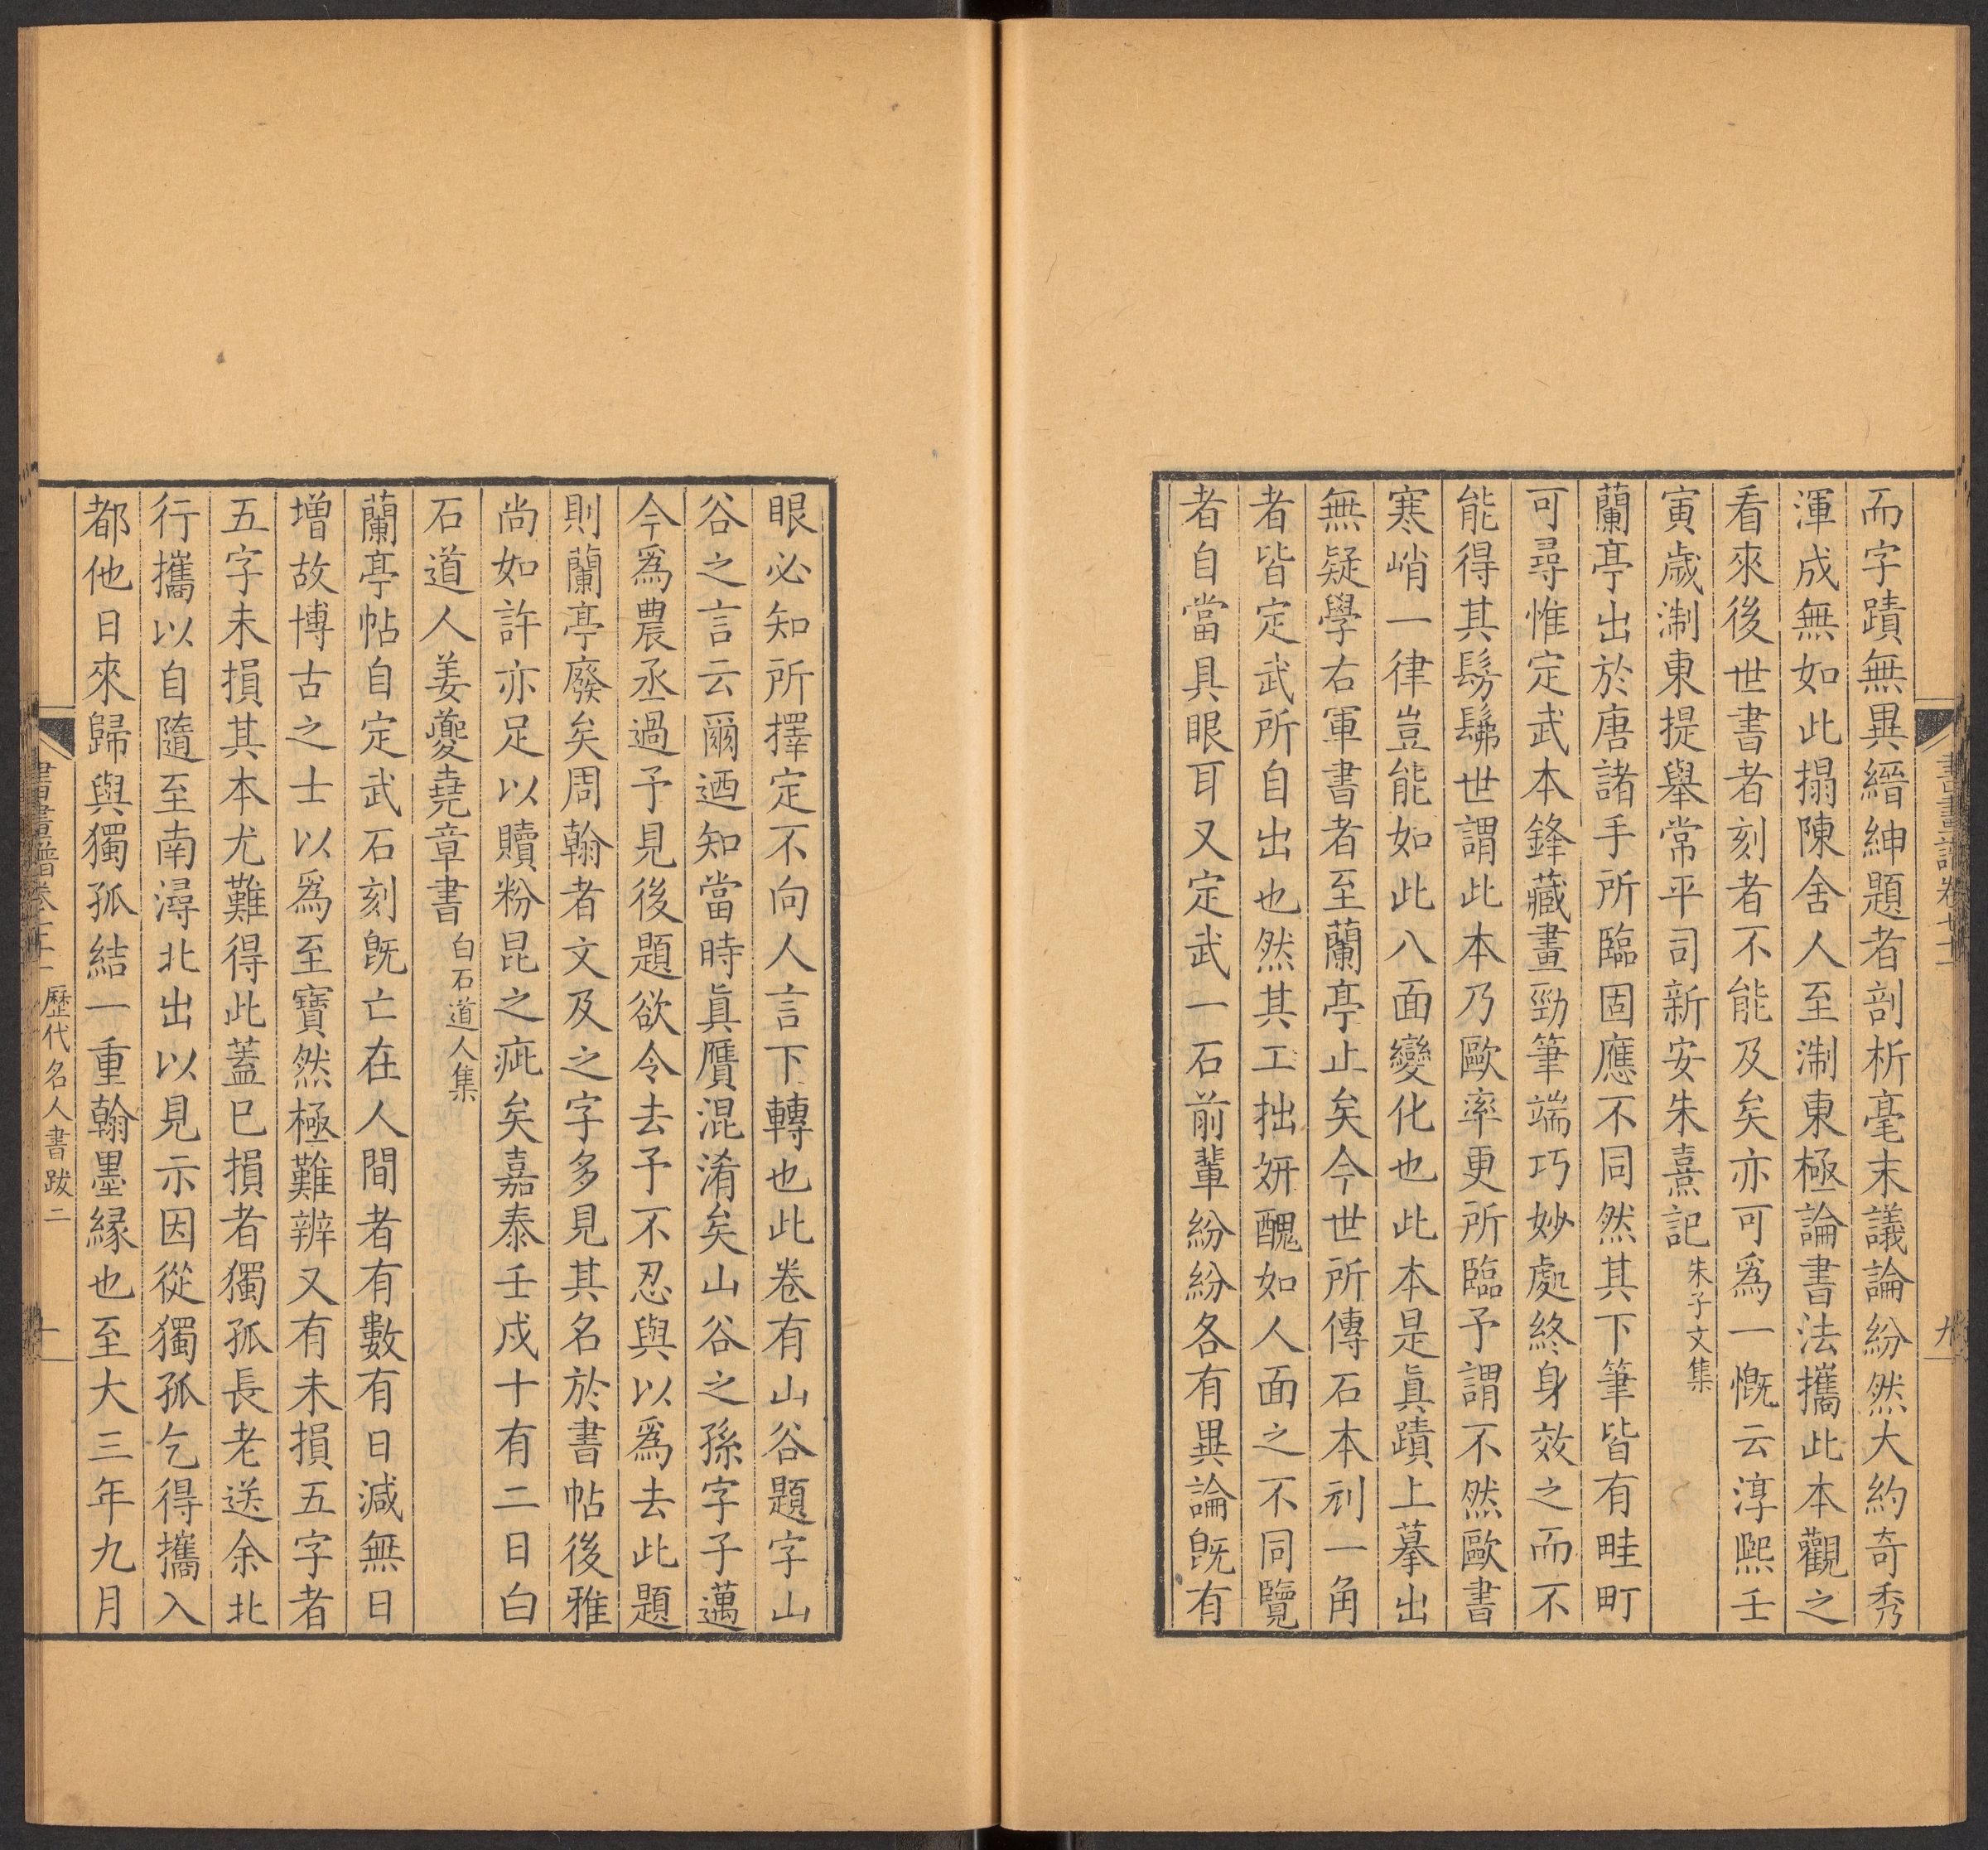 而字蹟無異縉紳題者剖析毫末議論紛然大約奇秀
渾成無如此搨陳舍人至淛東極論書法攜此本觀之
看來後世書者刻者不能及矣亦可爲一慨云淳熙壬
寅歲淛東提舉常平司新安朱熹記朱子文集
蘭亭出於唐諸手所臨固應不同然其下筆皆有畦町
可尋惟定武本鋒藏畫勁筆端巧妙處終身效之而不
能得其髣髴世謂此本乃歐率更所臨予謂不然歐書
寒峭一律豈能如此八面變化也此本是眞蹟上摹出
無疑學右軍書者至蘭亭止矣今世所傳石本刓一角
者皆定武所自出也然其工拙妍醜如人面之不同覽
者自當具眼耳又定武一石前輩紛紛各有異論旣有
九
眼必知所擇定不向人言下轉也此卷有山谷題字山
谷之言云爾迺知當時眞贋混淆矣山谷之孫字子邁
今爲農丞過予見後題欲令去予不忍與以爲去此題
則蘭亭廢矣周翰者文及之字多見其名於書帖後雅
尚如許亦足以贖粉昆之疵矣嘉泰壬戌十有二日白
石道人姜夔堯章書白石道人集
蘭亭帖自定武石刻旣亡在人間者有數有日減無日
增故博古之士以爲至寶然極難辨又有未損五字者
五字未損其本尤難得此蓋已損者獨孤長老送余北
行攜以自隨至南潯北出以見示因從獨孤乞得攜入
都他日來歸與獨孤結一重翰墨緣也至大三年九月
歷代名人書跋二